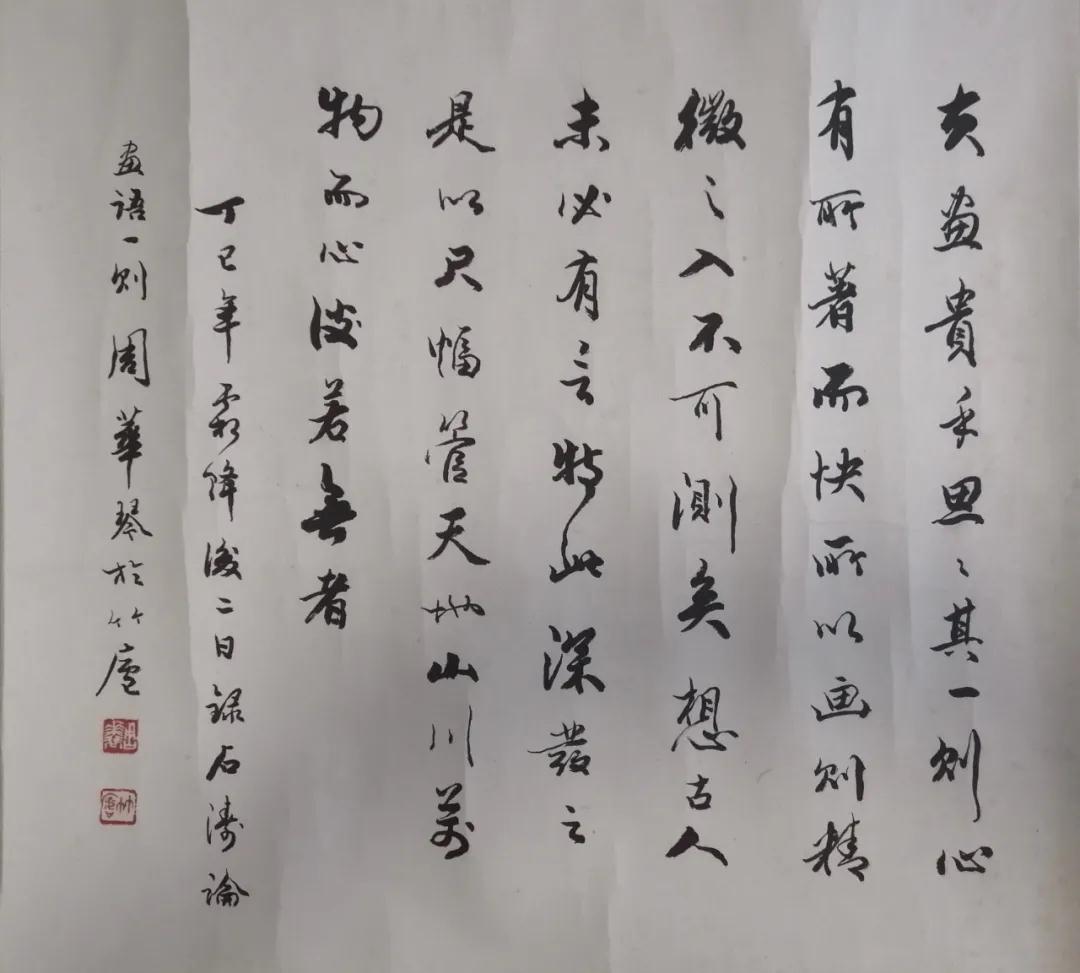 夫畫貴乎思〻其一則心
有所著而快所以画則精
微之入不可測矣想古人
未必有言特此深發之
是以尺幅管天地山川萬
物而心淡若無者
丁巳年霜降後二日録石濤論
畫語一則周華琴於竹廬